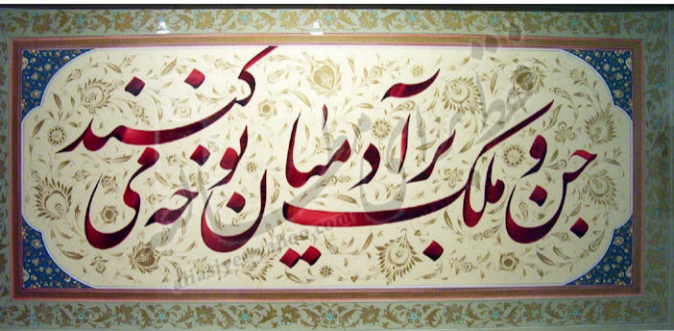 جن و ملک بر آدمیان نوحه می کنند